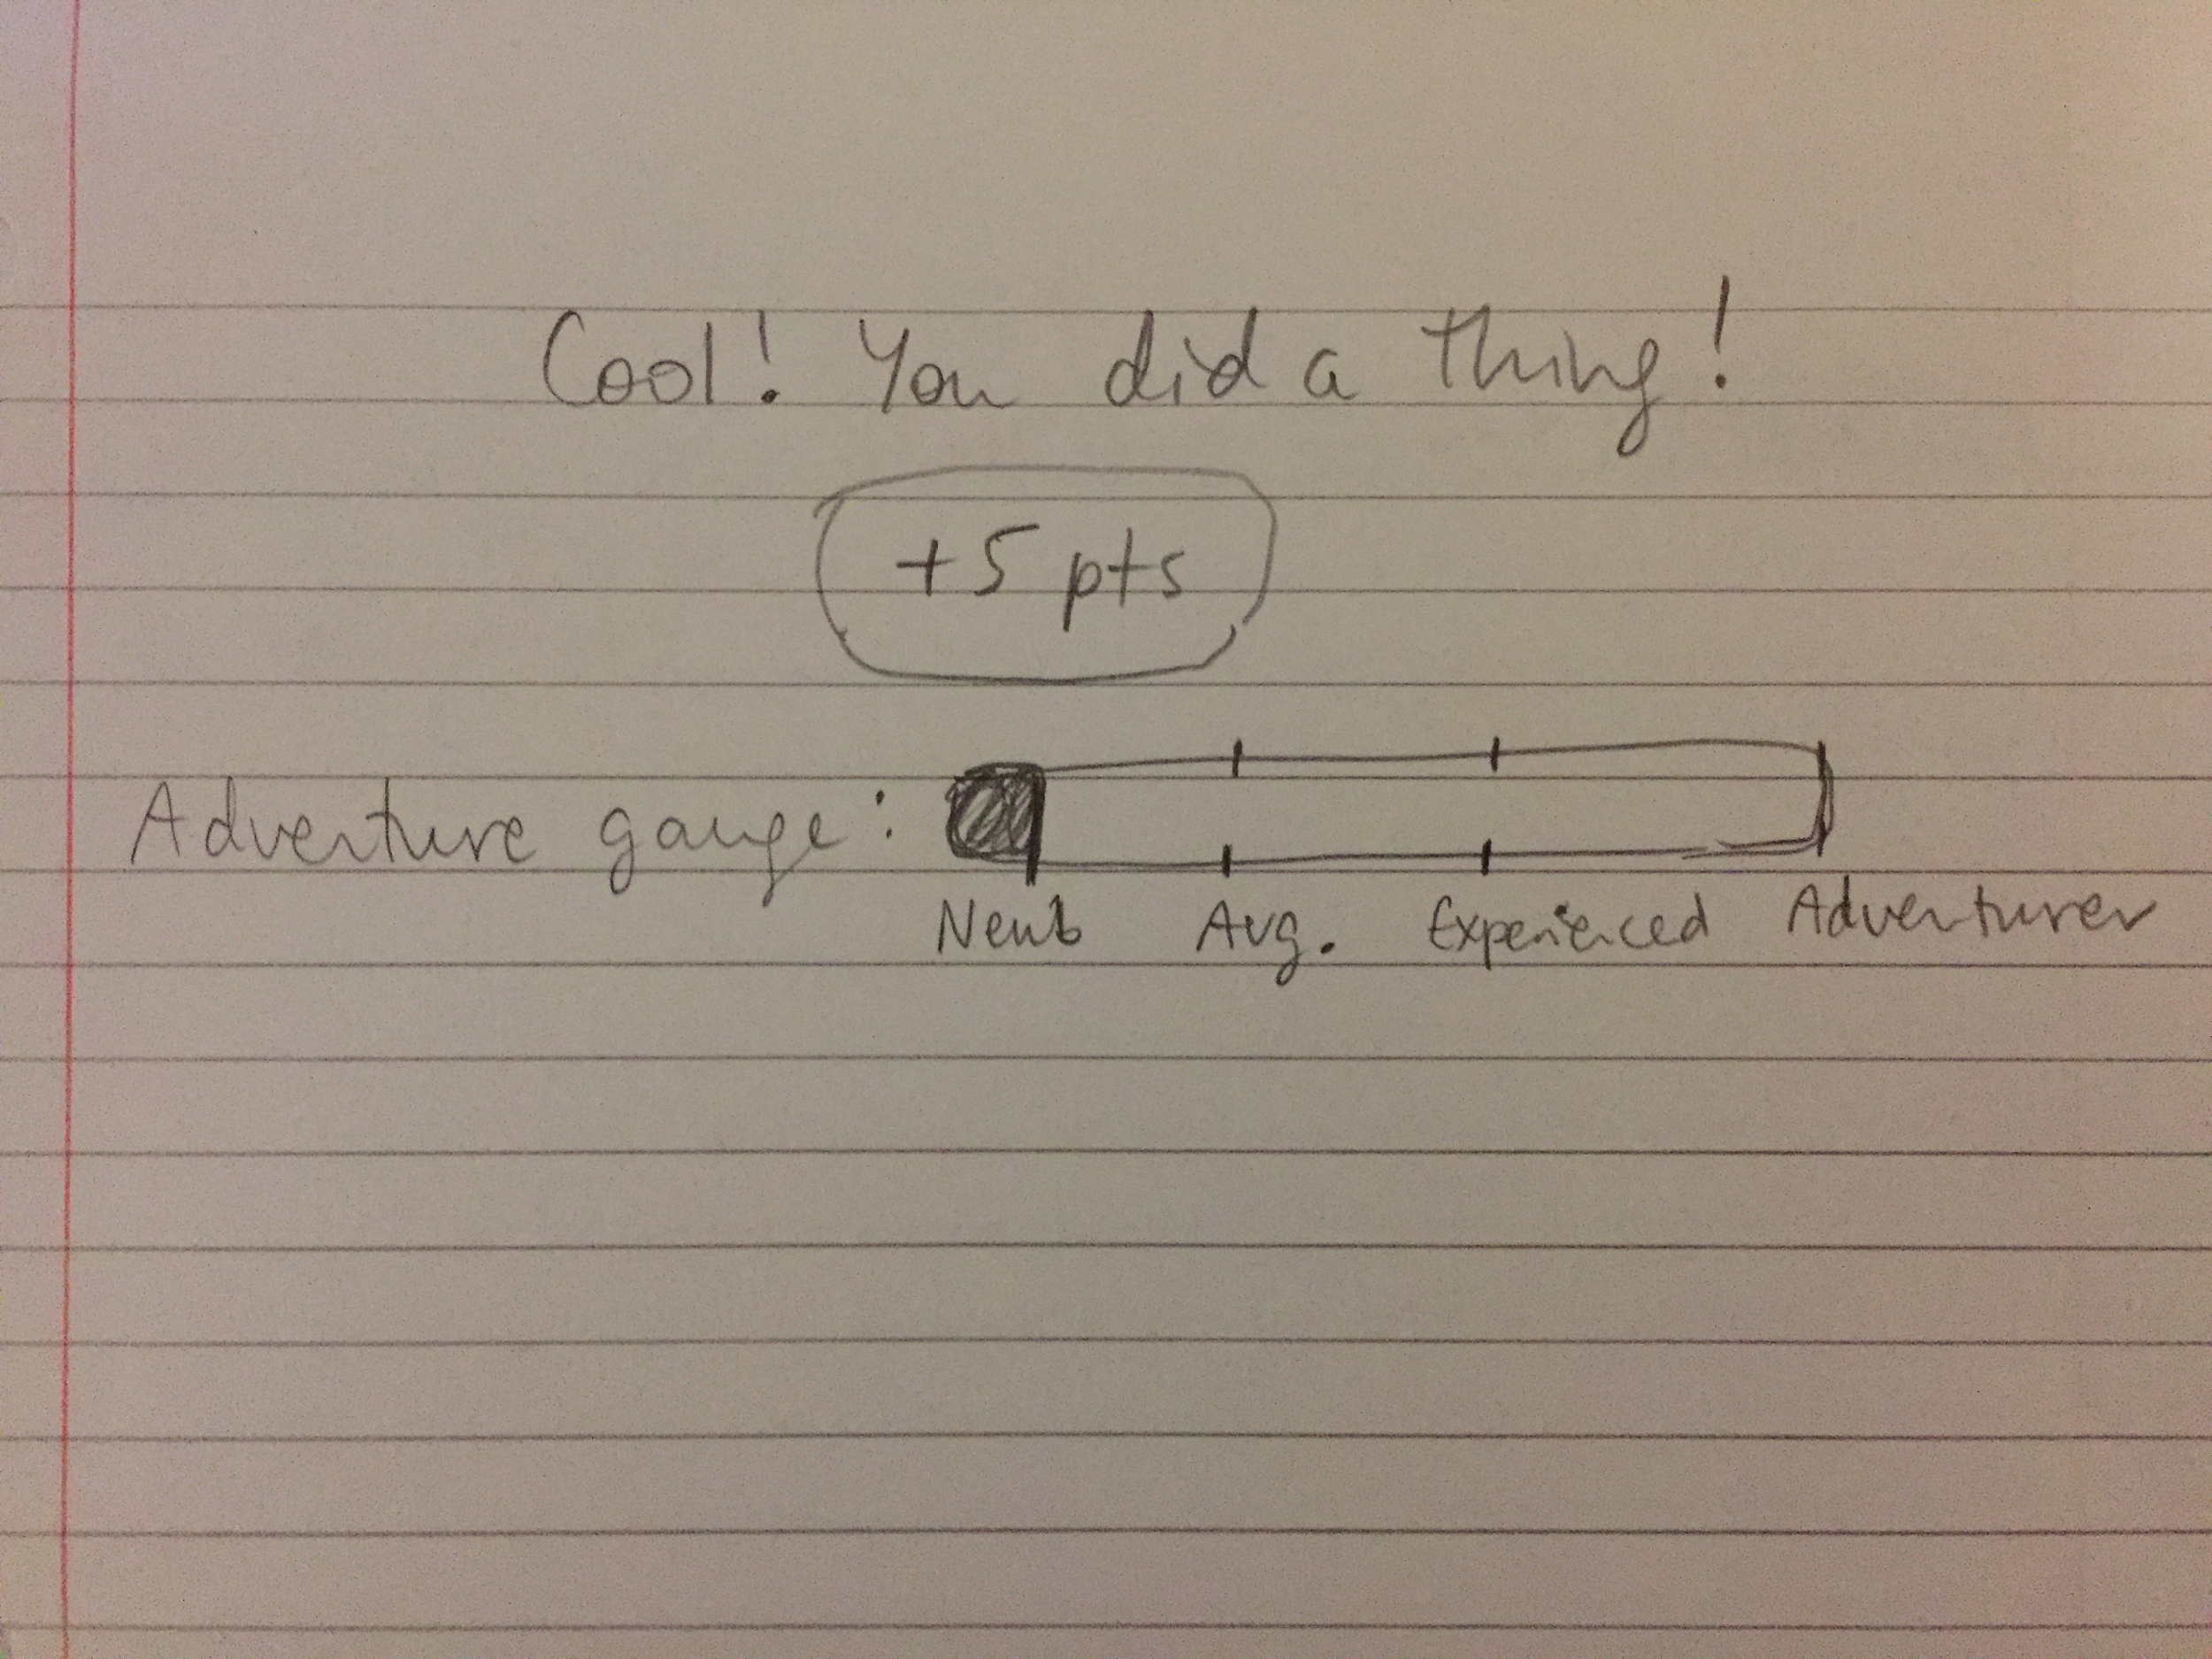 Cool! You did a thing!
+5 pts
Adventure gauge:
Newb Avg. Experienced Adventurer